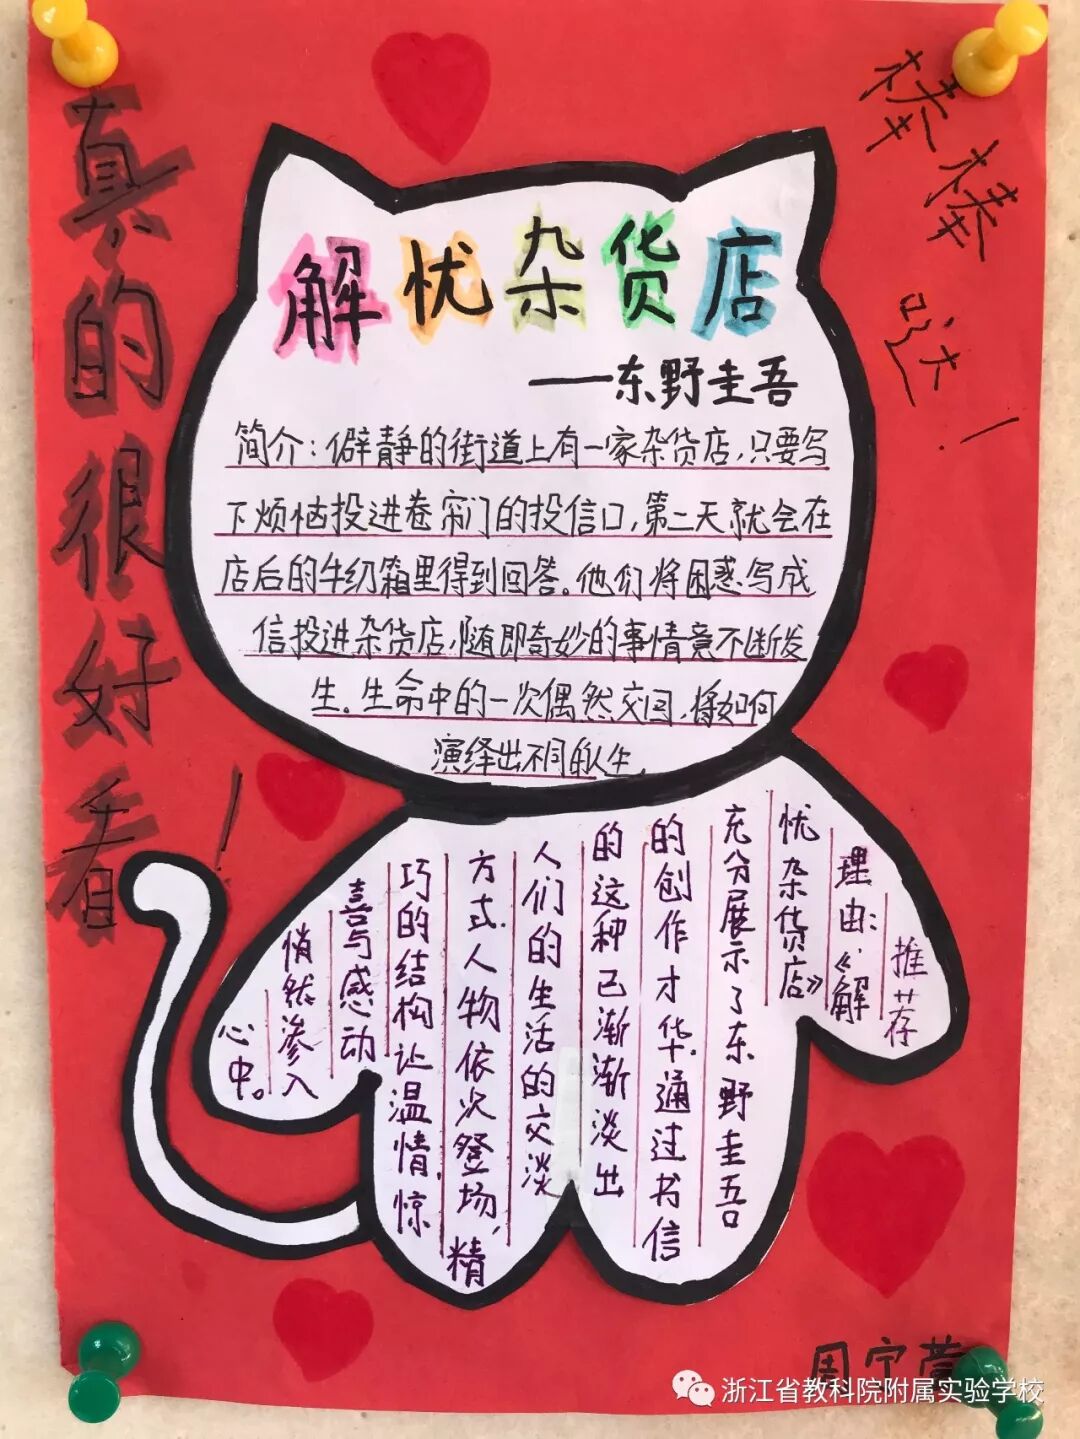 真的很好看!
棒棒哒!
解忧杂货店
——东野圭吾
简介:僻静的街道上有一家杂货店,只要写
下烦恼投进卷帘门的投信口,第二天就会在
店后的牛奶箱里得到回答。他们将困惑写成
信投进杂货店,随即奇妙的事情竟不断发
生。生命中的一次偶然交回,将如何
演绎出不同的人生.
推荐
理由:《解
忧杂货店》
充分展示了东野圭吾
的创作才华.通过书信
的这种已渐渐淡出
人们的生活的交淡
方式.人物依次登场,精
巧的结构让温情,惊
喜与感动
悄然渗入
心中。
周宁
浙江省教科院附属实验学校